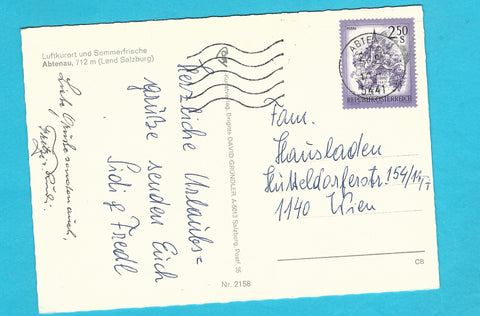 Luftkurort und Sommerfrische
Abtenau, 712 m (Land Salzburg)
Liebe Grüße senden euch,
Herzliche Urlaubs=
grüße senden Euch
Sidi & Fredl
DAVID GRÜNDLER, A-5013 Salzburg, Postf. 36
Nr. 2158
ABTENAU
5441
2.50
S
REPUBLIK ÖSTERREICH
Fam.
Hausladen
Hütteldorferstr. 154/14/7
1140 Wien
CB